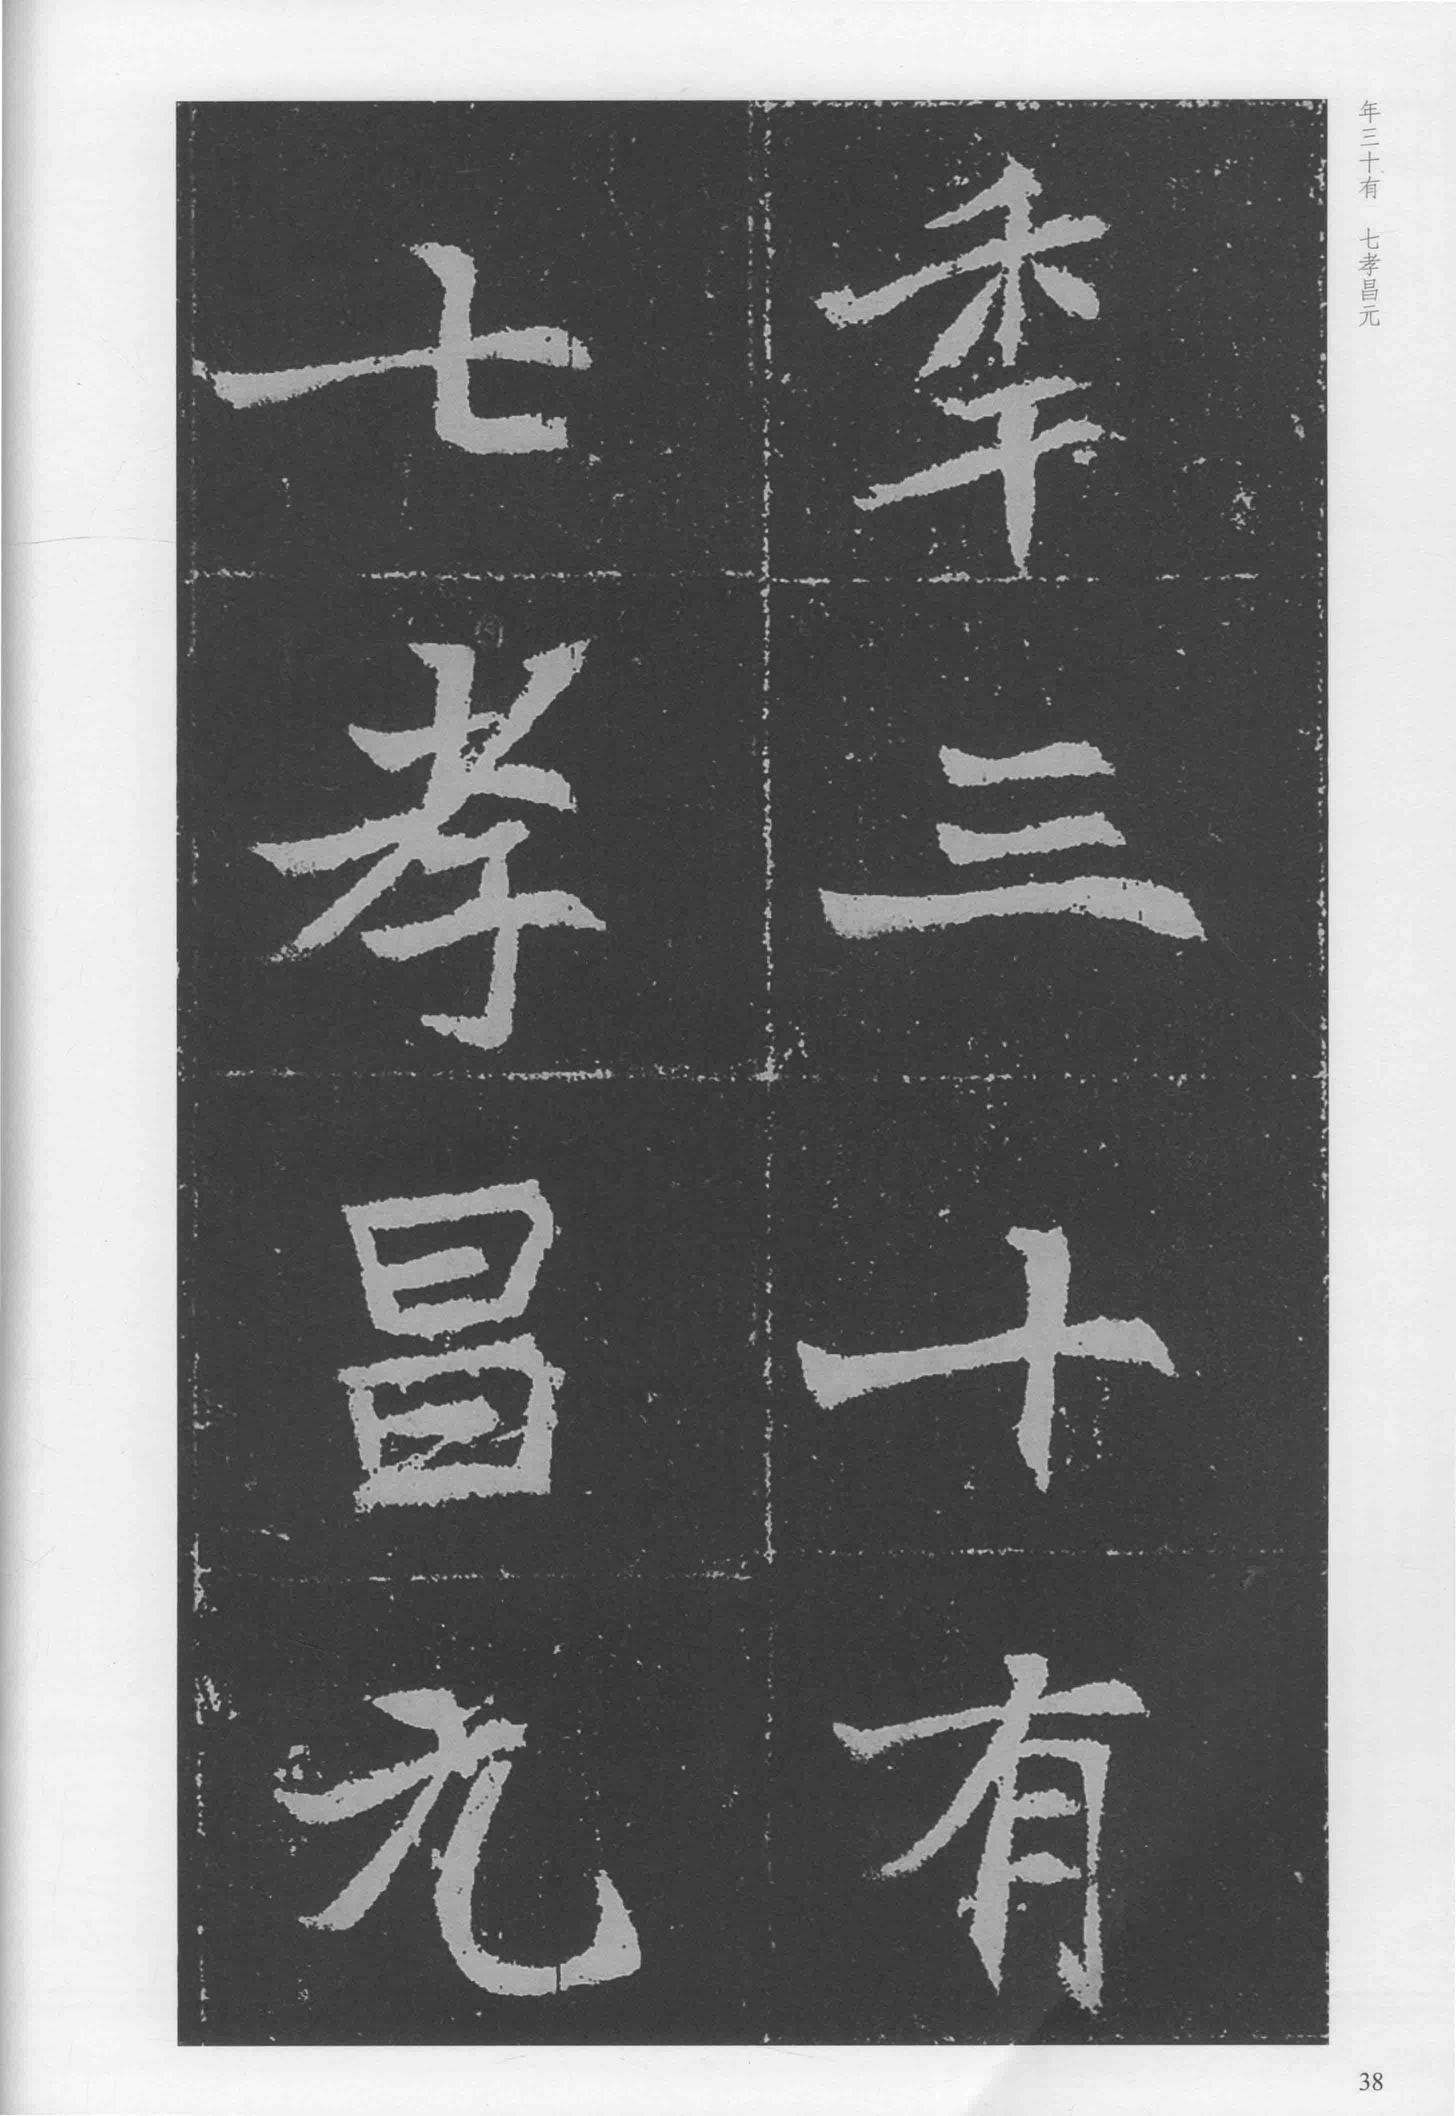 秊三十有
七孝昌元
年三十有　七孝昌元
38